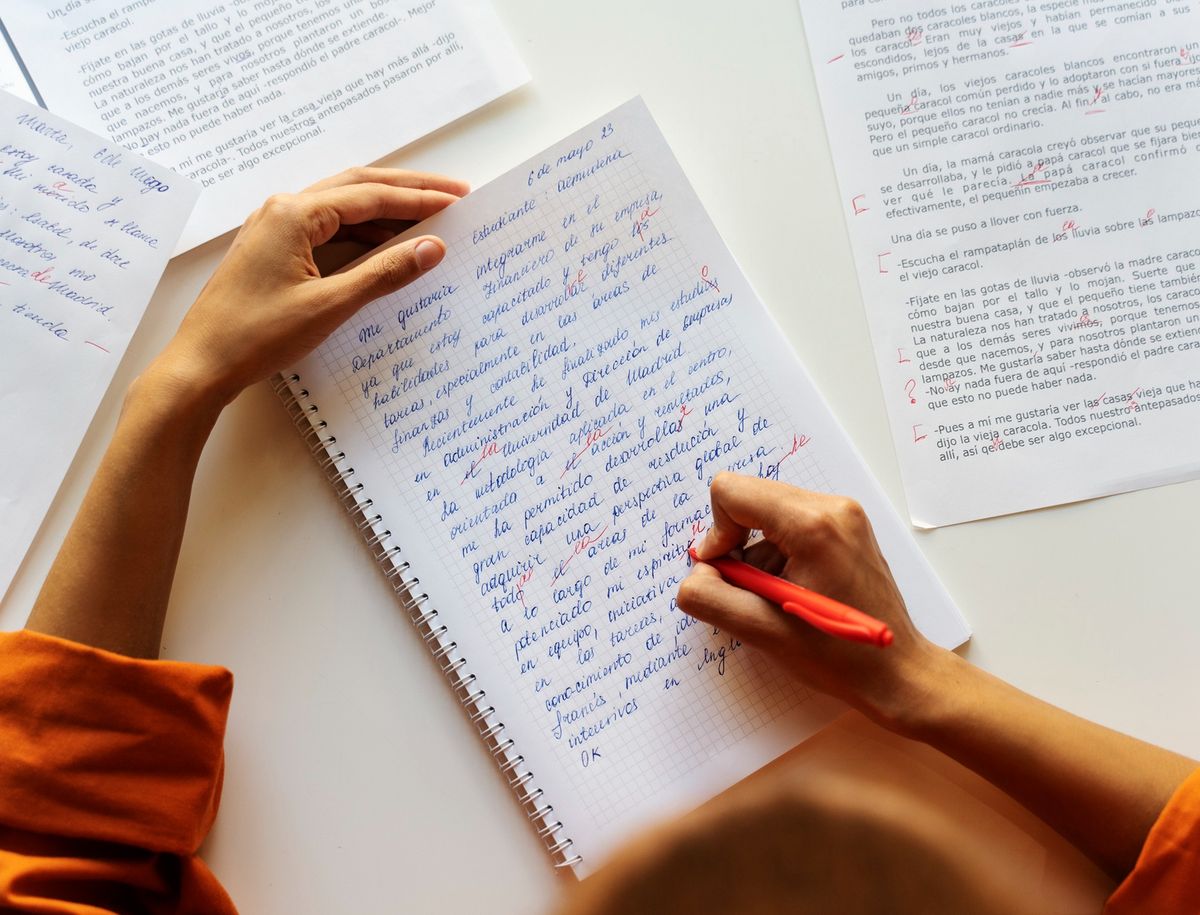 Un día se
-Escucha el rampataplán
viejo caracol.
-Fíjate en las gotas de lluvia -obser
cómo bajan por el tallo y lo mojan.
nuestra buena casa, y que el pequeño tien
La naturaleza nos han tratado a nosotros, los
que a los demás seres vivos, porque tenemos un
que nacemos, y para nosotros plantaron un bos
lampazos. Me gustaría saber hasta dónde se extiende.
No hay nada fuera de aquí -respondió el padre caracol-. Mejor
esto no puede haber nada.
a mí me gustaría ver la casa vieja que hay más allá -dijo
caracola-. Todos nuestros antepasados pasaron por allí,
be ser algo excepcional.
6 de mayo
casada y
a
Mi marido se llama
Isabel, de doce
nosotros, nos
de Madrid
tienda
6 de mayo 23
Estudiante: Admirena
Me gustaría integrarme en el
Departamento financiero de su empresa,
ya que estoy capacitado y tengo las
a
habilidades para desarrollar diferentes
tareas, especialmente en las áreas de
finanzas y contabilidad.
o
Recientemente he finalizado mis estudios
en administración y Dirección de Empresas
en el Universidad de Madrid.
la
La metodología aplicada en el centro,
orientado a el acción y resultados,
la
me ha permitido desarrollar una
gran capacidad de resolución y
adquirir una perspectiva global de
todas el áreas de la empresa.
a lo largo de mi formac
he
potenciado mi espíritu
en equipo, iniciativa
en las tareas, a
conocimiento de idi
francés, mediante
intensivos en inglé
OK
para con
Pero no todos los caracoles
quedaban dos caracoles blancos, la especie más
los caracol. Eran muy viejos y habían permanecido
escondidos, lejos de la casas en la que se comían a sus
amigos, primos y hermanos.
Un día, los viejos caracoles blancos encontraron un
pequeña caracol común perdido y lo adoptaron con si fuera
suyo, porque ellos no tenían a nadie más y se hacían mayores
Pero el pequeño caracol no crecía. Al fin, al cabo, no era más
que un simple caracol ordinario.
Un día, la mamá caracola creyó observar que su pequ
se desarrollaba, y le pidió a papá caracol que se fijara bien
ver qué le parecía. La papá caracol confirmó
efectivamente, el pequeñin empezaba a crecer.
Una día se puso a llover con fuerza.
-Escucha el rampataplán de los lluvia sobre las lampaz
el viejo caracol.
-Fíjate en las gotas de lluvia -observó la madre caracol
cómo bajan por el tallo y lo mojan. Suerte que
nuestra buena casa, y que el pequeño tiene también
La naturaleza nos han tratado a nosotros, los caracol
que a los demás seres vivimos, porque tenemos
desde que nacemos, y para nosotros plantaron un
lampazos. Me gustaría saber hasta dónde se extiend
? -No ay nada fuera de aquí -respondió el padre cara
que esto no puede haber nada.
-Pues a mí me gustaría ver las casas vieja que ha
dijo la vieja caracola. Todos nuestro antepasados
allí, así qe debe ser algo excepcional.